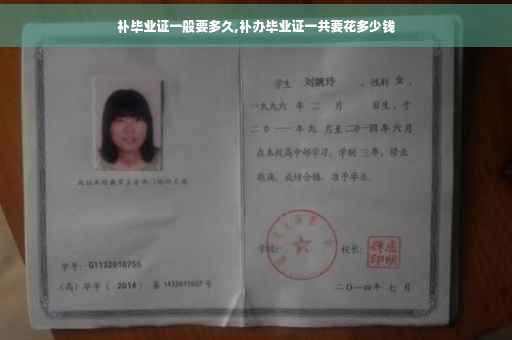 补毕业证一般要多久,补办毕业证一共要花多少钱
学生 刘婉玲 ，性别 女，
一九九六 年 二 月 日生，于
二〇一一 年 九 月至 二〇一四 年 六 月
在本校高中部学习，学制 三 年，修业
期满，成绩合格，准予毕业。
学校：
校长：
二〇一四年 七 月
学号：G1132010755
（高）毕字（ 2014 ）第 1432011027 号